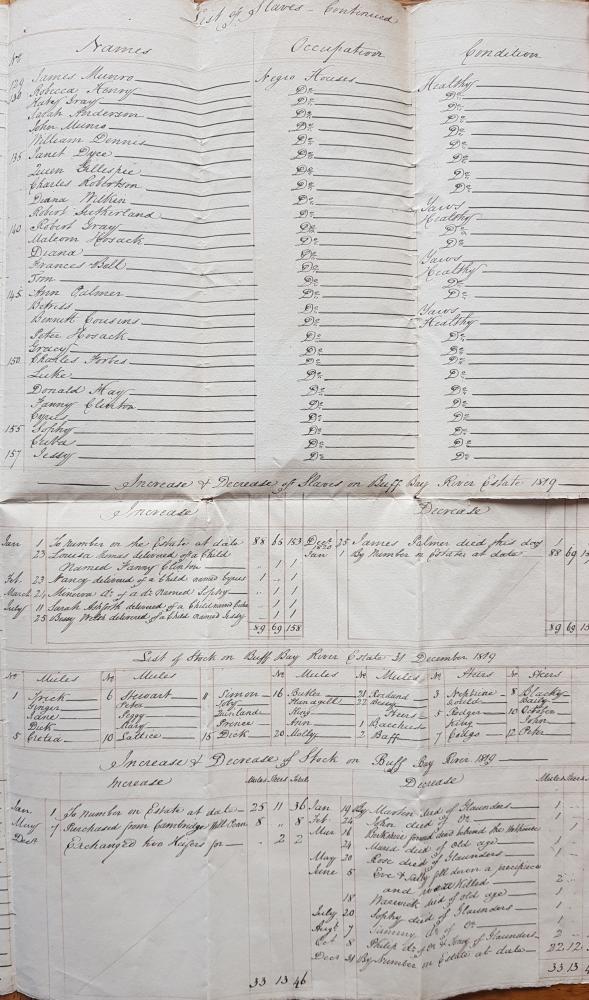 List of Slaves - Continued
No Names Occupation Condition
129 James Munro Negro Houses Healthy
130 Rebecca Henry Do Do
Katey Gray Do Do
Sarah Anderson Do Do
John Munro Do Do
William Dennis Do Do
135 Janet Dyce Do Do
Queen Gillespie Do Do
Charles Robertson Do Do
Diana Wilkin Do Yaws
Robert Sutherland Do Healthy
140 Robert Gray Do Do
Malcom Hosack Do Do
Diana Do Yaws
Frances Bell Do Healthy
Tom Do Do
145 Ann Palmer Do Do
Do Yaws
Bennett Cousins Do Healthy
Peter Hosack Do Do
Gracey Do Do
150 Charles Forbes Do Do
Luke Do Do
Donald Hay Do Do
Fanny Clinton Do Do
Cyrus Do Do
155 Sophy Do Do
Cuba Do Do
157 Jessy Do Do
Increase & Decrease of Slaves on Buff Bay River Estate 1819
Increase Decrease
Jan 1 To Number on the Estate at date 88 65 153 Decr 25 James Palmer died this day 1
23 Louisa delivered of a Child 1820 Jan 1 By Number on Estates at date 88 69
Named Fanny Clinton .. 1 1
Feb 23 Nancy delivered of a Child named Cyrus 1 .. 1
March 21 Minerva do of a do Named Sophy .. 1 1
July 11 Sarah delivered of a Child named Cuba .. 1 1
25 Bessy delivered of a Child named Jessy .. 1 1
89 69 158 89 69
List of Stock on Buff Bay River Estate 31 December 1819
No Mules No Mules No Mules No Mules No Steers No Steers
1 6 Stewart 11 Simon 16 Butler 21 Rowland 3 Neptune 8 Blacky
Ginger Peter Toby 22
Jane Peggy King Steers 5 Rodger 10 October
Dick Mary Prince Ann 1 Bacchus King John
5 Cretia 10 Lettice 15 Dick 20 Molly 2 Baff 7 Congo 12 Peter
Increase & Decrease of Stock on Buff Bay River 1819
Increase Mules Steers Total Decrease Mules Steers
Jan 1 To Number on Estate at date 25 11 36 Jan 19 By Martin died of Glaunders 1 ..
May 7 Purchased from Cambridge Hill Penn 8 .. 8 Feb 24 John died of Do 1
Decr Exchanged two Heifers for .. 2 2 Mar 16 Berkshire found dead behind the 1
24 Maria died of old age 1
May 20 Rose died of Glaunders 1
June 5 Eve & Sally fell down a precipiece
and were Killed 2 ..
18 Warwick died of old age 1
July 20 Sophy died of Glaunders 1
Augt 7 Tammy do of Do 1
Oct 8 Philip do of Do & Tony of Glaunders 2 ..
Decr 31 By Number on Estate at date 22 12
33 13 46 33 13